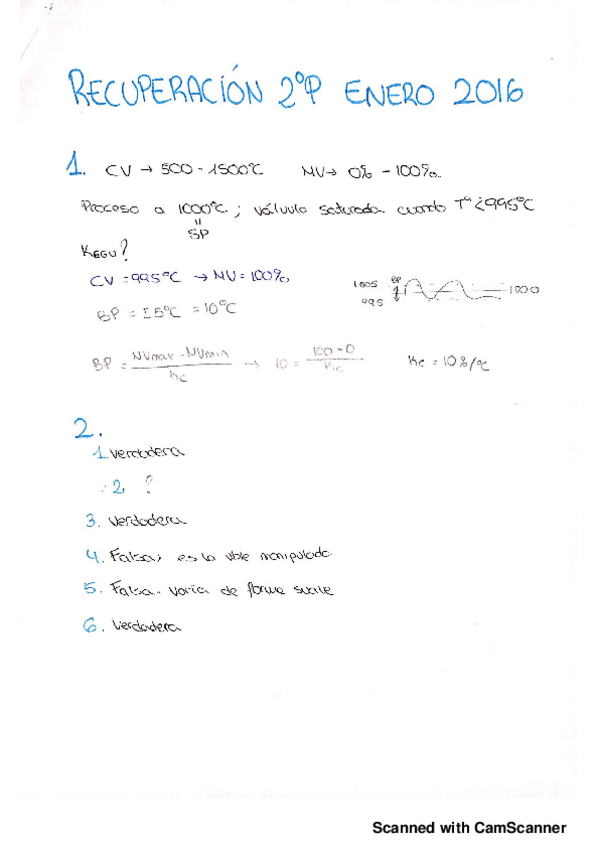 RECUPERACIÓN 2ºP ENERO 2016
1. CV → 500 - 1500ºC MV → 0% - 100%.
Proceso a 1000ºC ; válvula saturada cuando Tª < 995ºC
=
SP
KEGU?
CV = 995ºC → MV = 100%
1005 BP
995 1000
BP = ±5ºC = 10ºC
BP = MVmax - MVmin / Kc → 10 = 100 - 0 / Kc Kc = 10%/ºC
2.
1. Verdadera
2. ?
3. Verdadera
4. Falsa, es la vble manipulada
5. Falsa. varia de forma suave
6. Verdadera
Scanned with CamScanner